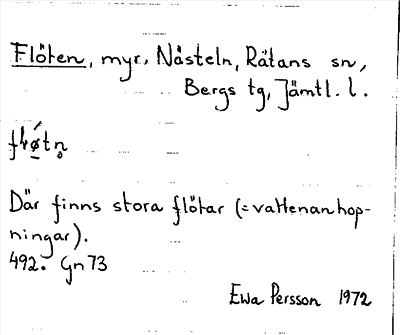 Flöten, myr, Nästeln, Rätans sn,
Bergs tg, Jämtl. l.
Där finns stora flötar (= vattenanhop-
ningar).
492. Gn 73
Ewa Persson 1972